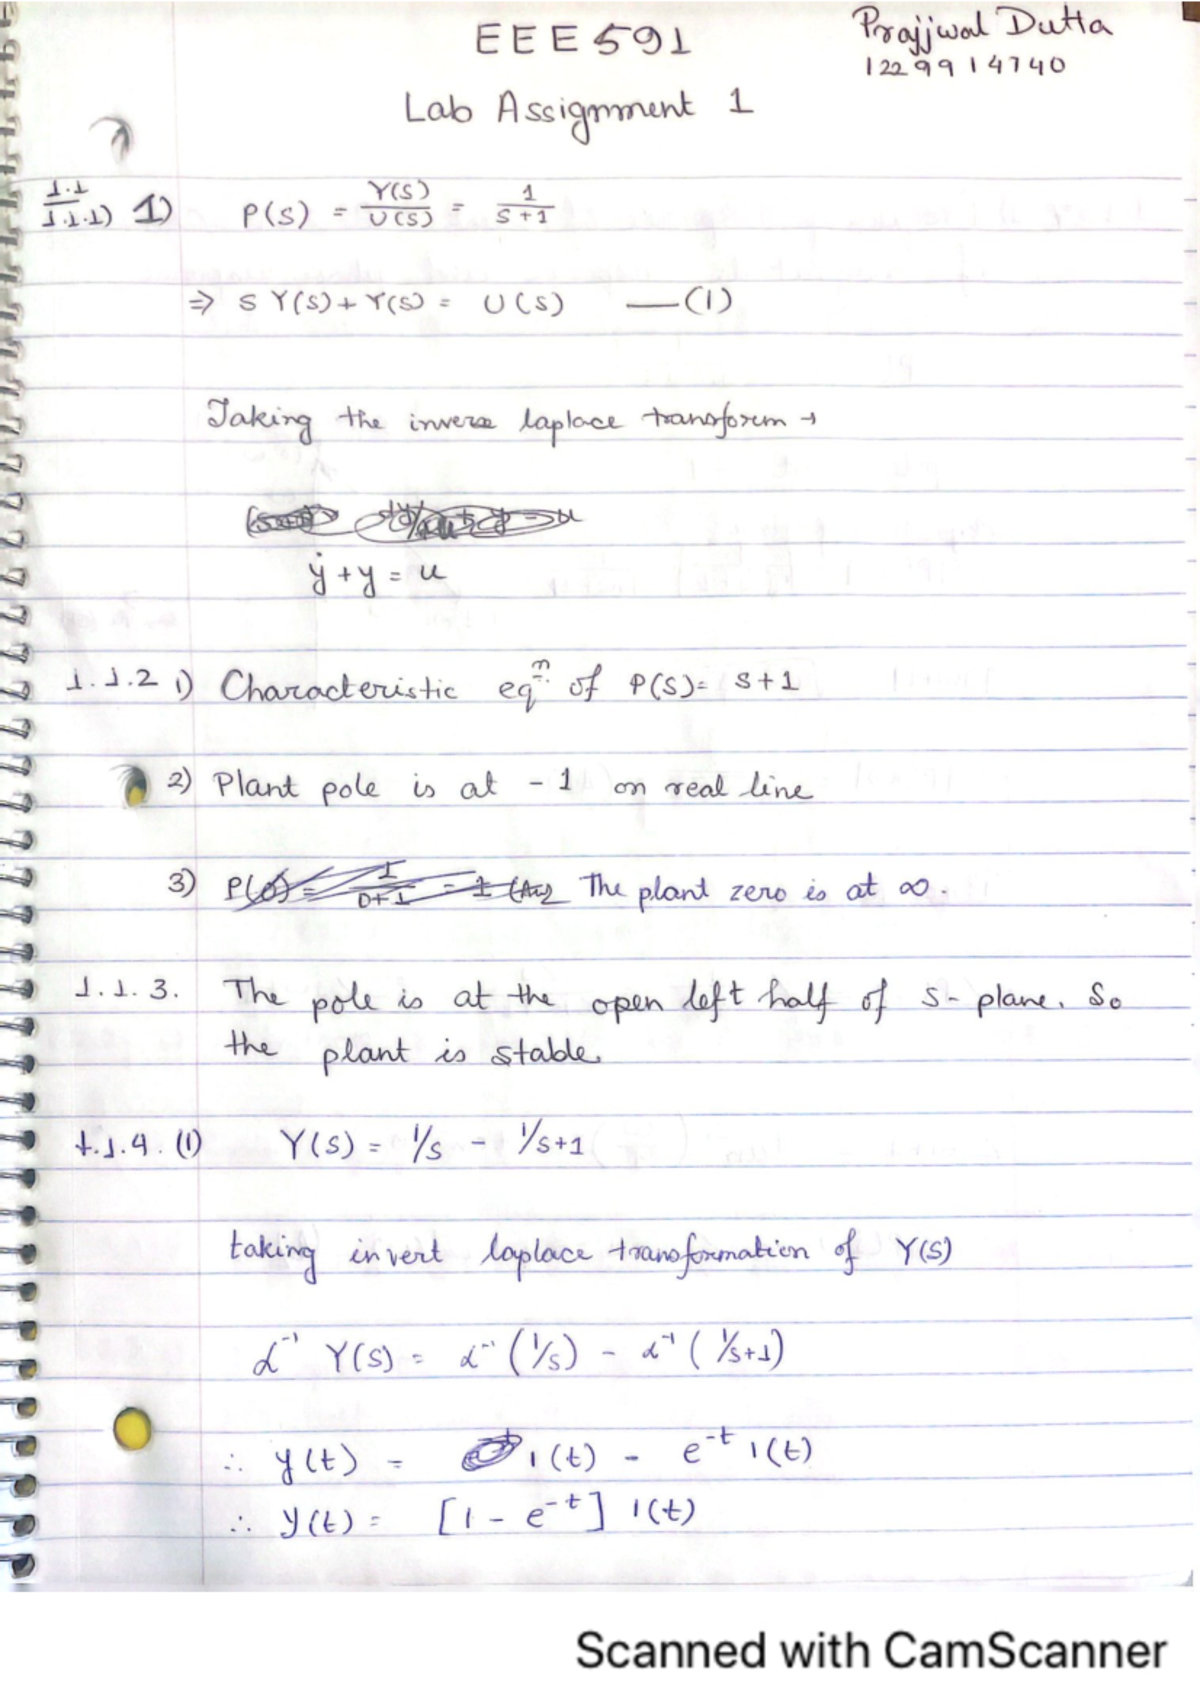 EEE 591
Prajjwal Dutta
1229914740
Lab Assignment 1
1.1
1.1.1) 1) P(s) = Y(s)/U(s) = 1/s+1
⇒ s Y(s) + Y(s) = U(s) —(1)
Taking the inverse laplace transform →
ẏ + y = u
1.1.2 1) Characteristic eqn. of P(s) = s+1
2) Plant pole is at -1 on real line
3) P(0) = 1/0+1 = 1 (Ans) The plant zero is at ∞.
1.1.3. The pole is at the open left half of s-plane. So
the plant is stable.
1.1.4. (1) Y(s) = 1/s - 1/s+1
taking invert laplace transformation of Y(s)
ℒ⁻¹ Y(s) = ℒ⁻¹ (1/s) - ℒ⁻¹ (1/s+1)
∴ y(t) = 1(t) - e⁻ᵗ 1(t)
∴ y(t) = [1 - e⁻ᵗ] 1(t)
Scanned with CamScanner